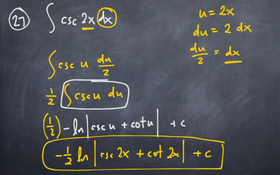 27) ∫ csc 2x dx
u = 2x
du = 2 dx
du/2 = dx
∫ csc u du/2
1/2 ∫ csc u du
(1/2) -ln |csc u + cot u| + c
-1/2 ln |csc 2x + cot 2x| + c